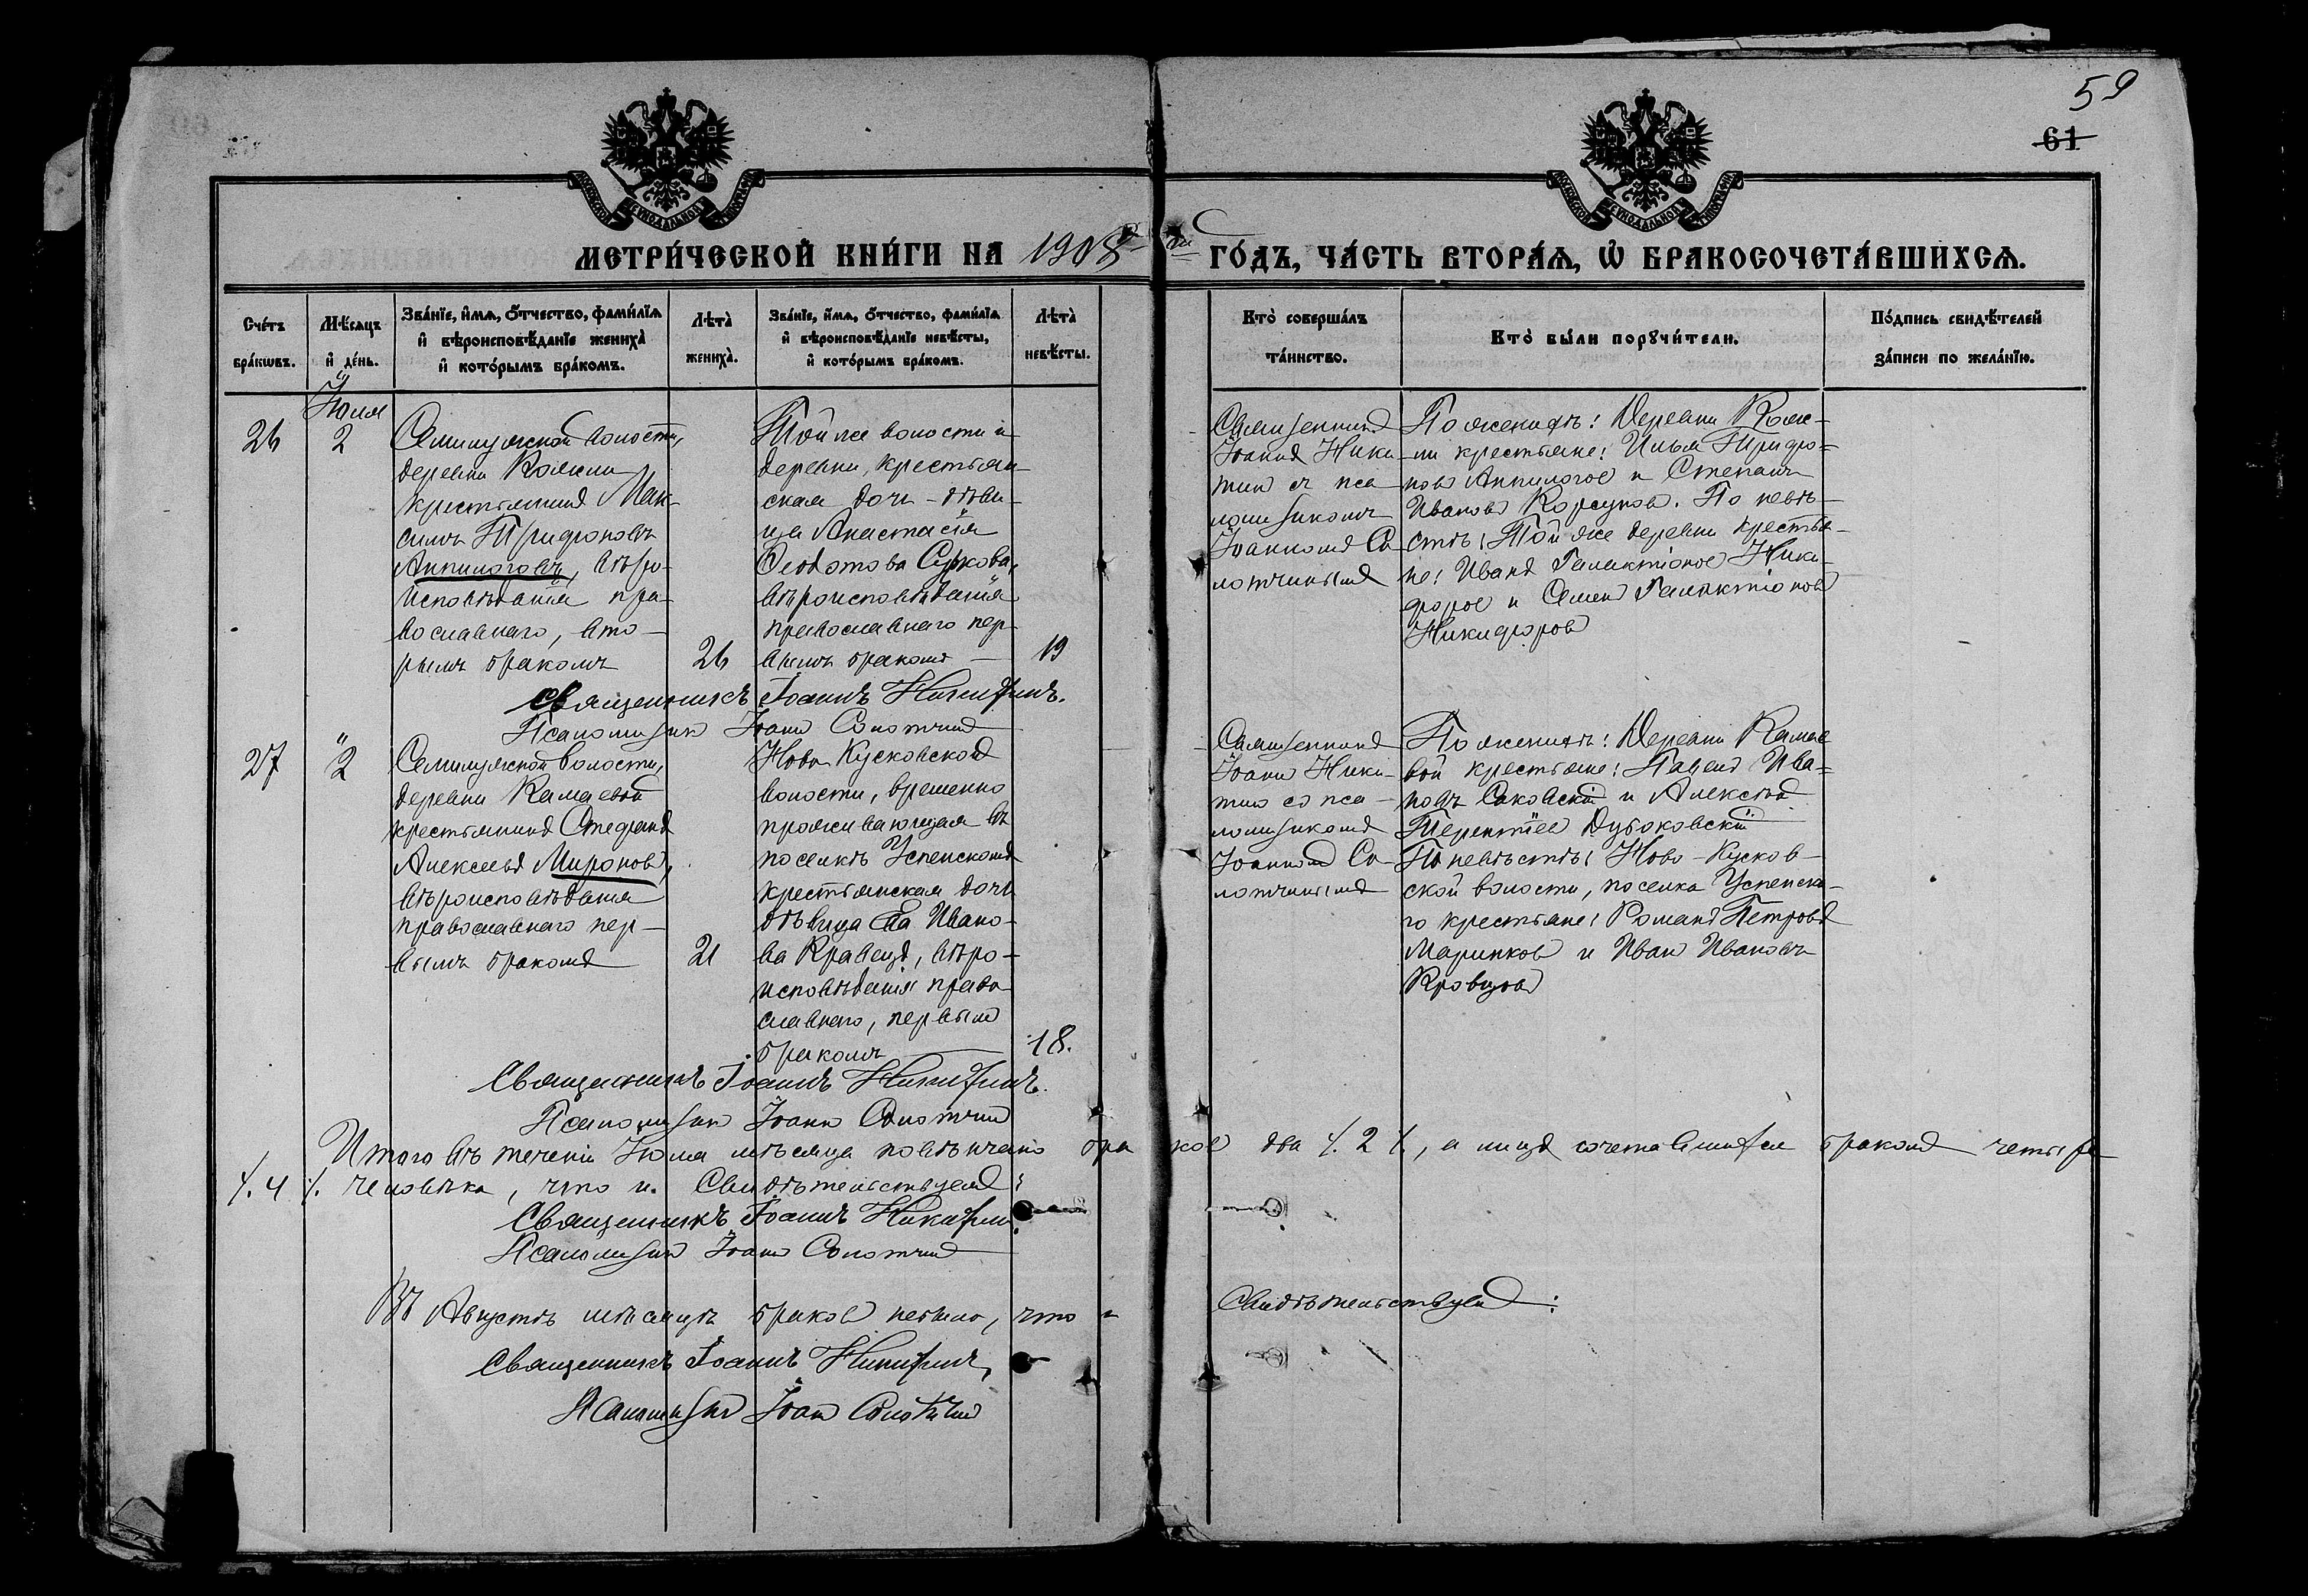 59
61
МЕТРИ́ЧЕСКОЙ КНИ́ГИ НА 1908 ГО́ДЪ, ЧА́СТЬ ВТОРА́Я, Ѽ БРАКОСОЧЕТА́ВШИХСЯ.
Сче́тъ бра́кѡвъ.
Мѣ́сяцъ и҆ де́нь.
Зва́нїе, и҆́мя, ѻ҆́тчество, фами́лїя и҆ вѣроисповѣ́данїе жениха̀ и҆ кото́рымъ бра́комъ.
Лѣта̀ жениха̀.
Зва́нїе, и҆́мя, ѻ҆́тчество, фами́лїя и҆ вѣроисповѣ́данїе невѣ́сты, и҆ кото́рымъ бра́комъ.
Лѣта̀ невѣ́сты.
Кто̀ соверша́лъ та́инство.
Кто̀ бы́ли порꙋчи́тели.
По́дпись свидѣ́телей за́писи по жела́нїю.
Юля
26
2
Семилужской волости,
деревни Кояжи
крестьянинъ Мак-
симъ Трифоновъ
Анпилоговъ, вѣро-
исповѣданія пра-
вославнаго, вто-
рымъ бракомъ
26
Той же волости и
деревни, крестьян-
ская дочь - дѣви-
ца Анастасія
Ѳеодотова Суркова,
вѣроисповѣданія
православнаго пер-
вымъ бракомъ
19
Священникъ
Іоаннъ Ники-
тинъ съ пса-
ломщикомъ
Іоанномъ Со-
лотчинымъ
По женихѣ: Деревни Кояж-
ни крестьяне: Илья Трифо-
новъ Анпилогов и Степанъ
Ивановъ Корсуков. По невѣ-
стѣ: Той же деревни крестья-
не: Иванъ Галактіонов Ники-
форов и Семенъ Галактіоновъ
Никифоровъ
Священникъ Іоаннъ Никитинъ.
Псаломщик Іоанн Солотчин
27
" 2
Семилужской волости,
деревни Камаевой
крестьянинъ Стефанъ
Алексѣевъ Мироновъ,
вѣроисповѣданія
православнаго пер-
вымъ бракомъ
21
Ново-Кусковской
волости, временно
проживающая въ
поселкѣ Успенскомъ
крестьянская дочь
дѣвица Ева Ивано-
ва Кравецъ, вѣро-
исповѣданія право-
славнаго, первым
бракомъ
18.
Священникъ
Іоанн Ники-
тин съ пса-
ломщикомъ
Іоанном Со-
лотчинымъ
По женихѣ: Деревни Камае-
вой крестьяне: Павелъ Ива-
новъ Саковскій и Алексѣй
Терентіев Дубоковскій
По невѣстѣ: Ново-Кусков-
ской волости, поселка Успенска-
го крестьяне: Романъ Петровъ
Маринков и Иван Ивановъ
Кровцовъ
Священникъ Іоаннъ Никитинъ.
Псаломщик Іоанн Солотчин
Итого въ теченіи Юля мѣсяца повѣнчано браков два /. 2 /., а лицъ сочетавшихся бракомъ четыре
/. 4 /. человѣка, что и Свидѣтельствуемъ:
Священникъ Іоаннъ Никитин.
Псаломщик Іоанн Солотчин
Въ Августѣ мѣсяцѣ браков небыло, что и Свидѣтельствуемъ:
Священникъ Іоаннъ Никитинъ,
Псаломщик Іоанн Солотчин